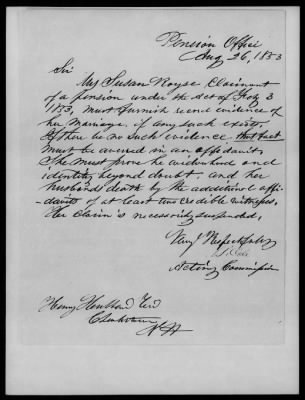 Pension Office
Aug 26, 1853
Sir
Mrs Susan Royse, Claimant
of a pension under the act of Feby 3
1853, must furnish record evidence of
her Marriage, if any such exists.
If there be no such evidence, that fact
must be averred in an affidavit.
She must prove her widowhood and
identity beyond doubt, and her
husband's death by the additional affi-
davits of at least two credible witnesses.
Her claim is necessarily suspended.
Very Respectfully
Acting Commissioner
Henry Hubbard
N H